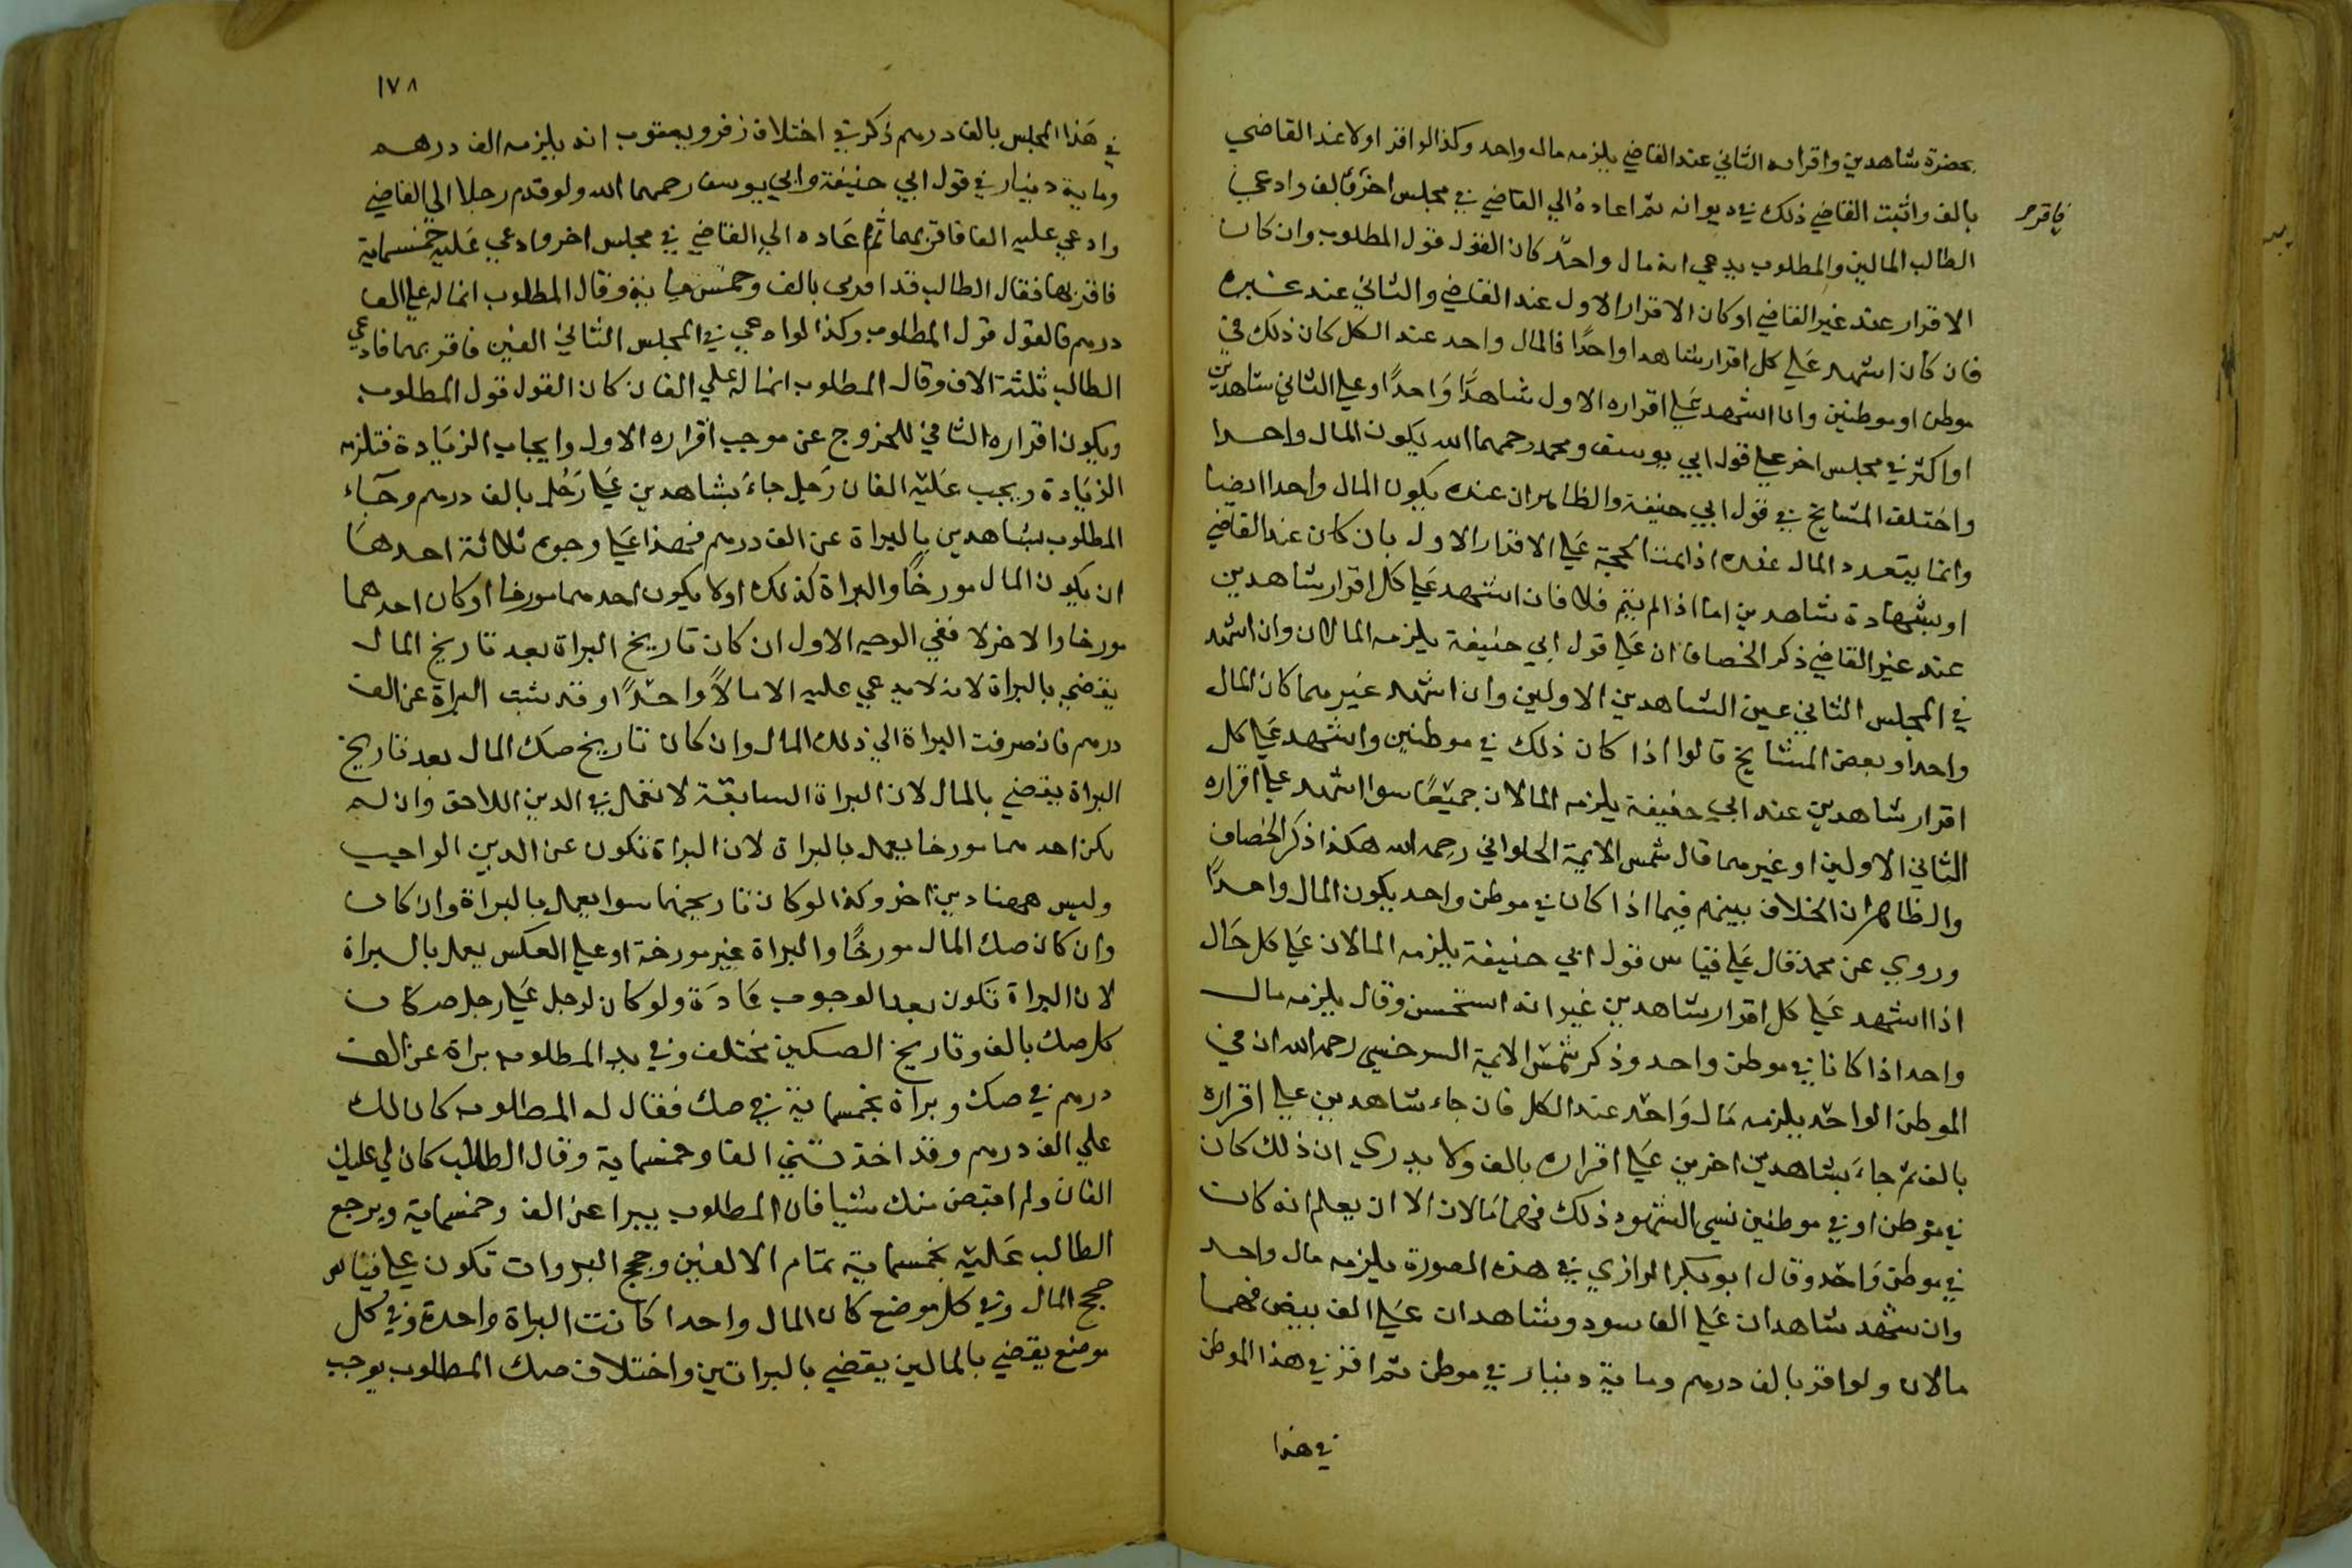 بحضرة شاهدين واقراره الثاني عند القاضي يلزمه مال واحد وكذا لو اقر اولا عند القاضي
بالف واثبت القاضي ذلك في ديوانه ثم اعاده الي القاضي في مجلس اخر بالف وادعي
فاقر صح
الطالب المالين والمطلوب يدعي انه مال واحد كان القول قول المطلوب وان كان
الاقرار عند غير القاضي او كان الاقرار الاول عند القاضي والثاني عند غيره
فان كان اشهد علي كل اقرار شاهدا واحدا فالمال واحد عند الكل كان ذلك في
موطن او موطنين وان اشهد علي اقراره الاول شاهدا واحدا وعلي الثاني شاهدين
او اكثر في مجلس اخر علي قول ابي يوسف ومحمد رحمهما الله يكون المال واحدا
واختلف المشايخ في قول ابي حنيفة والظاهر ان عنده يكون المال واحدا ايضا
وانما يتعدد المال عنده اذا تمت الحجة علي الاقرار الاول بان كان عند القاضي
او بشهادة شاهدين اما اذا لم يتم فلا فان اشهد علي كل اقرار شاهدين
عند غير القاضي ذكر الخصاف ان علي قول ابي حنيفة يلزمه المالان وان اشهد
في المجلس الثاني عين الشاهدين الاولين وان اشهد غيرهما كان المال
واحدا وبعض المشايخ قالوا اذا كان ذلك في موطنين واشهد علي كل
اقرار شاهدين عند ابي حنيفة يلزمه المالان جميعا سوا اشهد علي اقراره
الثاني الاولين او غيرهما قال شمس الايمة الحلواني رحمه الله هكذا ذكر الخصاف
والظاهر ان الخلاف بينهم فيما اذا كان في موطن واحد يكون المال واحدا
وروي عن محمد قال علي قياس قول ابي حنيفة يلزمه المالان علي كل حال
اذا اشهد علي كل اقرار شاهدين غير انه استحسن وقال يلزمه مال
واحد اذا كانا في موطن واحد وذكر شمس الايمة السرخسي رحمه الله ان في
الموطن الواحد يلزمه مال واحد عند الكل فان جاء شاهدين علي اقراره
بالف ثم جاء بشاهدين اخرين علي اقراره بالف ولا يدري ان ذلك كان
في موطن او في موطنين نسي الشهود ذلك فهما مالان الا ان يعلم انه كان
في موطن واحد وقال ابو بكر الرازي في هذه الصورة يلزمه مال واحد
وان شهد شاهدان علي الف سود وشاهدان علي الف بيض فهما
مالان ولو اقر بالف درهم وماية دينار في موطن ثم اقر في هذا الموطن
في هذا
١٧٨
في هذا المجلس بالف درهم ذكر في اختلاف زفر ويعقوب انه يلزمه الف درهم
وماية دينار في قول ابي حنيفة وابي يوسف رحمهما الله ولو قدم رجلا الي القاضي
وادعي عليه الفا فاقر بهما ثم اعاده الي القاضي في مجلس اخر وادعي عليه خمسماية
فاقر بها فقال الطالب قد اقر لي بالف وخمسماية وقال المطلوب انما له علي الف
درهم فالقول قول المطلوب وكذا لو ادعي في المجلس الثاني الفين فاقر بهما فادعي
الطالب ثلثة الاف وقال المطلوب انما له علي الفان كان القول قول المطلوب
ويكون اقراره الثاني للخروج عن موجب اقراره الاول وايجاب الزيادة فتلزمه
الزيادة ويجب عليه الفان رجل جاء بشاهدين علي رجل بالف درهم وجاء
المطلوب بشاهدين بالبراة عن الف درهم فهذا علي وجوه ثلاثة احدها
ان يكون المال مورخا والبراة كذلك او لا يكون احدهما مورخا او كان احدهما
مورخا والاخر لا ففي الوجه الاول ان كان تاريخ البراة بعد تاريخ المال
يقضي بالبراة لانه لا يدعي عليه الا مالا واحدا وقد ثبت البراة عن الف
درهم فانصرفت البراة الي ذلك المال وان كان تاريخ صك المال بعد تاريخ
البراة يقضي بالمال لان البراة السابقة لا تعمل في الدين اللاحق وان لم
يكن احدهما مورخا يعمل بالبراة لان البراة تكون عن الدين الواجب
وليس ههنا دين اخر وكذا لو كان تاريخهما سوا يعمل بالبراة وان كان
وان كان صك المال مورخا والبراة غير مورخة او علي العكس يعمل بالبراة
لان البراة تكون بعد الوجوب عادة ولو كان لرجل علي رجل صكان
كل صك بالف وتاريخ الصكين مختلف وفي يد المطلوب براة عن الف
درهم في صك وبراة بخمسماية في صك فقال له المطلوب كان لك
علي الف درهم وقد اخذت مني الفا وخمسماية وقال الطالب كان لي عليك
الفان ولم اقبض منك شيا فان المطلوب يبرا عن الف وخمسماية ويرجع
الطالب عليه بخمسماية تمام الالفين وحجج البروات تكون علي قياس
حجج المال وفي كل موضع كان المال واحدا كانت البراة واحدة وفي كل
موضع يقضي بالمالين يقضي بالبراتين واختلاف صك المطلوب يوجب